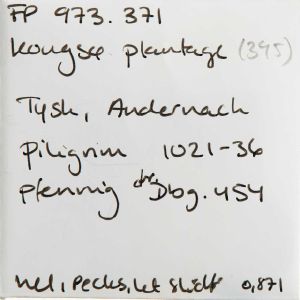 FP 973.371
Kongsø plantage (395)
Tysk, Andernach
Piligrim 1021-36
pfennig Dbg. 454
hel, 0,871